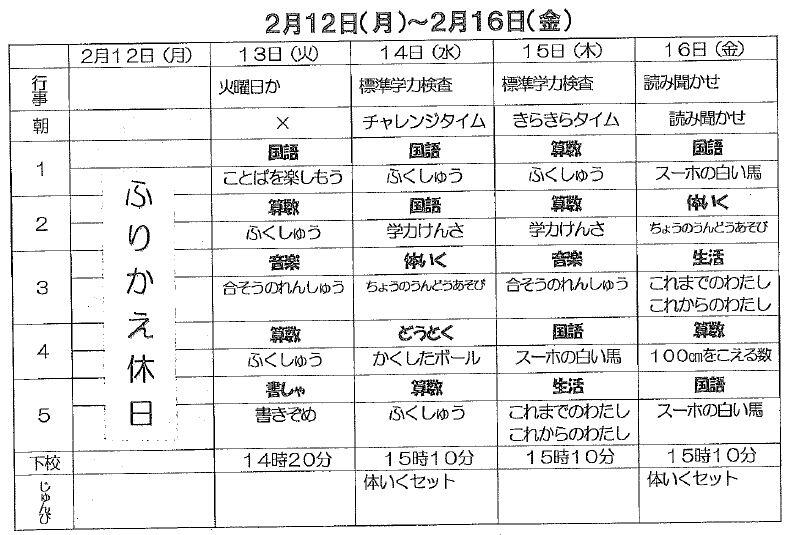 2月12日(月)～2月16日(金)
2月12日(月) 13日(火) 14日(水) 15日(木) 16日(金)
行事 火曜日か 標準学力検査 標準学力検査 読み聞かせ
朝 × チャレンジタイム きらきらタイム 読み聞かせ
1 国語 国語 算数 国語
ことばを楽しもう ふくしゅう ふくしゅう スーホの白い馬
ふりかえ休日
2 算数 国語 算数 体いく
ふくしゅう 学力けんさ 学力けんさ ちょうのうんどうあそび
3 音楽 体いく 音楽 生活
合そうのれんしゅう ちょうのうんどうあそび 合そうのれんしゅう これまでのわたし
これからのわたし
4 算数 どうとく 国語 算数
ふくしゅう かくしたボール スーホの白い馬 100㎝をこえる数
5 書しゃ 算数 生活 国語
書きぞめ ふくしゅう これまでのわたし スーホの白い馬
これからのわたし
下校 14時20分 15時10分 15時10分 15時10分
じゅんび 体いくセット 体いくセット